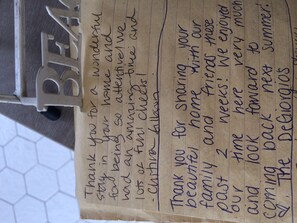 BEA
Thank you for a wonderful
time in your home and
for being so attentive! We
had an amazing time and
lots of fun! Cheers!
Thank you for sharing your
beautiful home with our
family and friends these
past 2 weeks! We enjoyed
our time here very much
and look forward to
coming back next summer!
The DeGiorgios